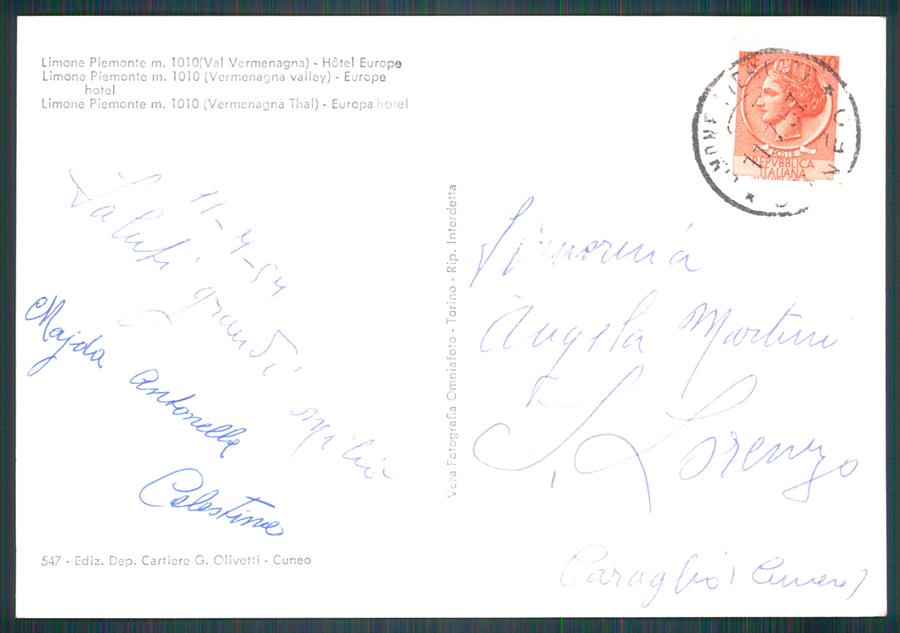 Limone Piemonte m. 1010(Val Vermenagna) - Hôtel Europe
Limone Piemonte m. 1010 (Vermenagna valley) - Europe
hotel
Limone Piemonte m. 1010 (Vermenagna Thal) - Europa hotel
11-4-54
Saluti grandi
Majda
Antonella
Celestina
547 - Ediz. Dep. Cartiere G. Olivetti - Cuneo
Vera Fotografia Omniafoto - Torino - Rip. Interdetta
LIMONE
CUNEO
POSTE
REPVBBLICA
ITALIANA
Signorina
Angela Martini
S. Lorenzo
Caraglio (Cuneo)